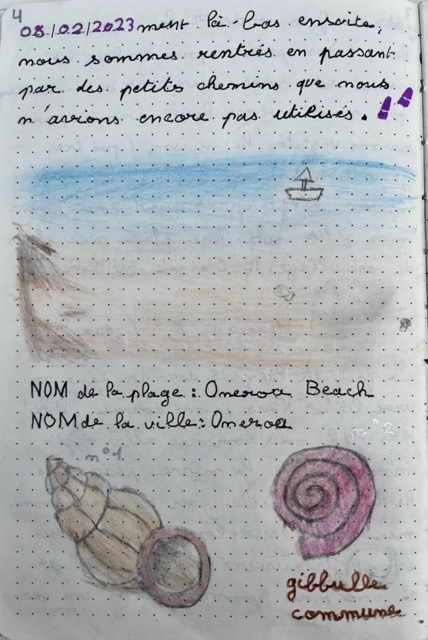 4
08/02/2023 ment là-bas ensuite,
nous sommes rentrés en passant
par des petits chemins que nous
n'avions encore pas utilisés.
NOM de la plage : Oneroa Beach
NOM de la ville : Oneroa
n°1
n°2
gibbulle
commune